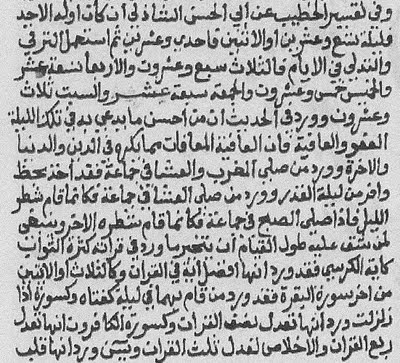 وفي تفسير الخطيب عن أبي الحسن الشاذلي ان كان أوله الأحد
فليلة تسع وعشرين أو الاثنين فاحدى وعشرين ثم استعمل الترقي
والتدلي في الايام فالثلاث سبع وعشرون والأربعا تسعة عشر
والخميس خمس وعشرون والجمعة سبعة عشر والسبت ثلاث
وعشرون وورد في الحديث ان من أحسن ما يدعى به في تلك الليلة
العفو والعافية فان العافية المعافات مما يكره في الدين والدنيا
والاخرة وورد من صلى المغرب والعشا في جماعة فقد أخذ بحظ
وافر من ليلة القدر وورد من صلى العشا في جماعة فكانما قام شطر
الليل فاذا صلى الصبح في جماعة فكانما قام شطره الاخر وينبغي
لمن شق عليه طول القيام أن يتخير ما ورد في قرأته كثرة الثواب
كاية الكرسي فقد ورد انها افضل آية في القرآن وكالثلاث أو الاثنين
من آخر سورة البقرة فقد ورد من قام بهما في ليلة كفتاه وكسورة اذا
زلزلت ورد انها تعدل نصف القرآن وكسورة الكافرون انها تعدل
ربع القرآن والاخلاص تعدل ثلث القرآن ويس ورد انها قلب